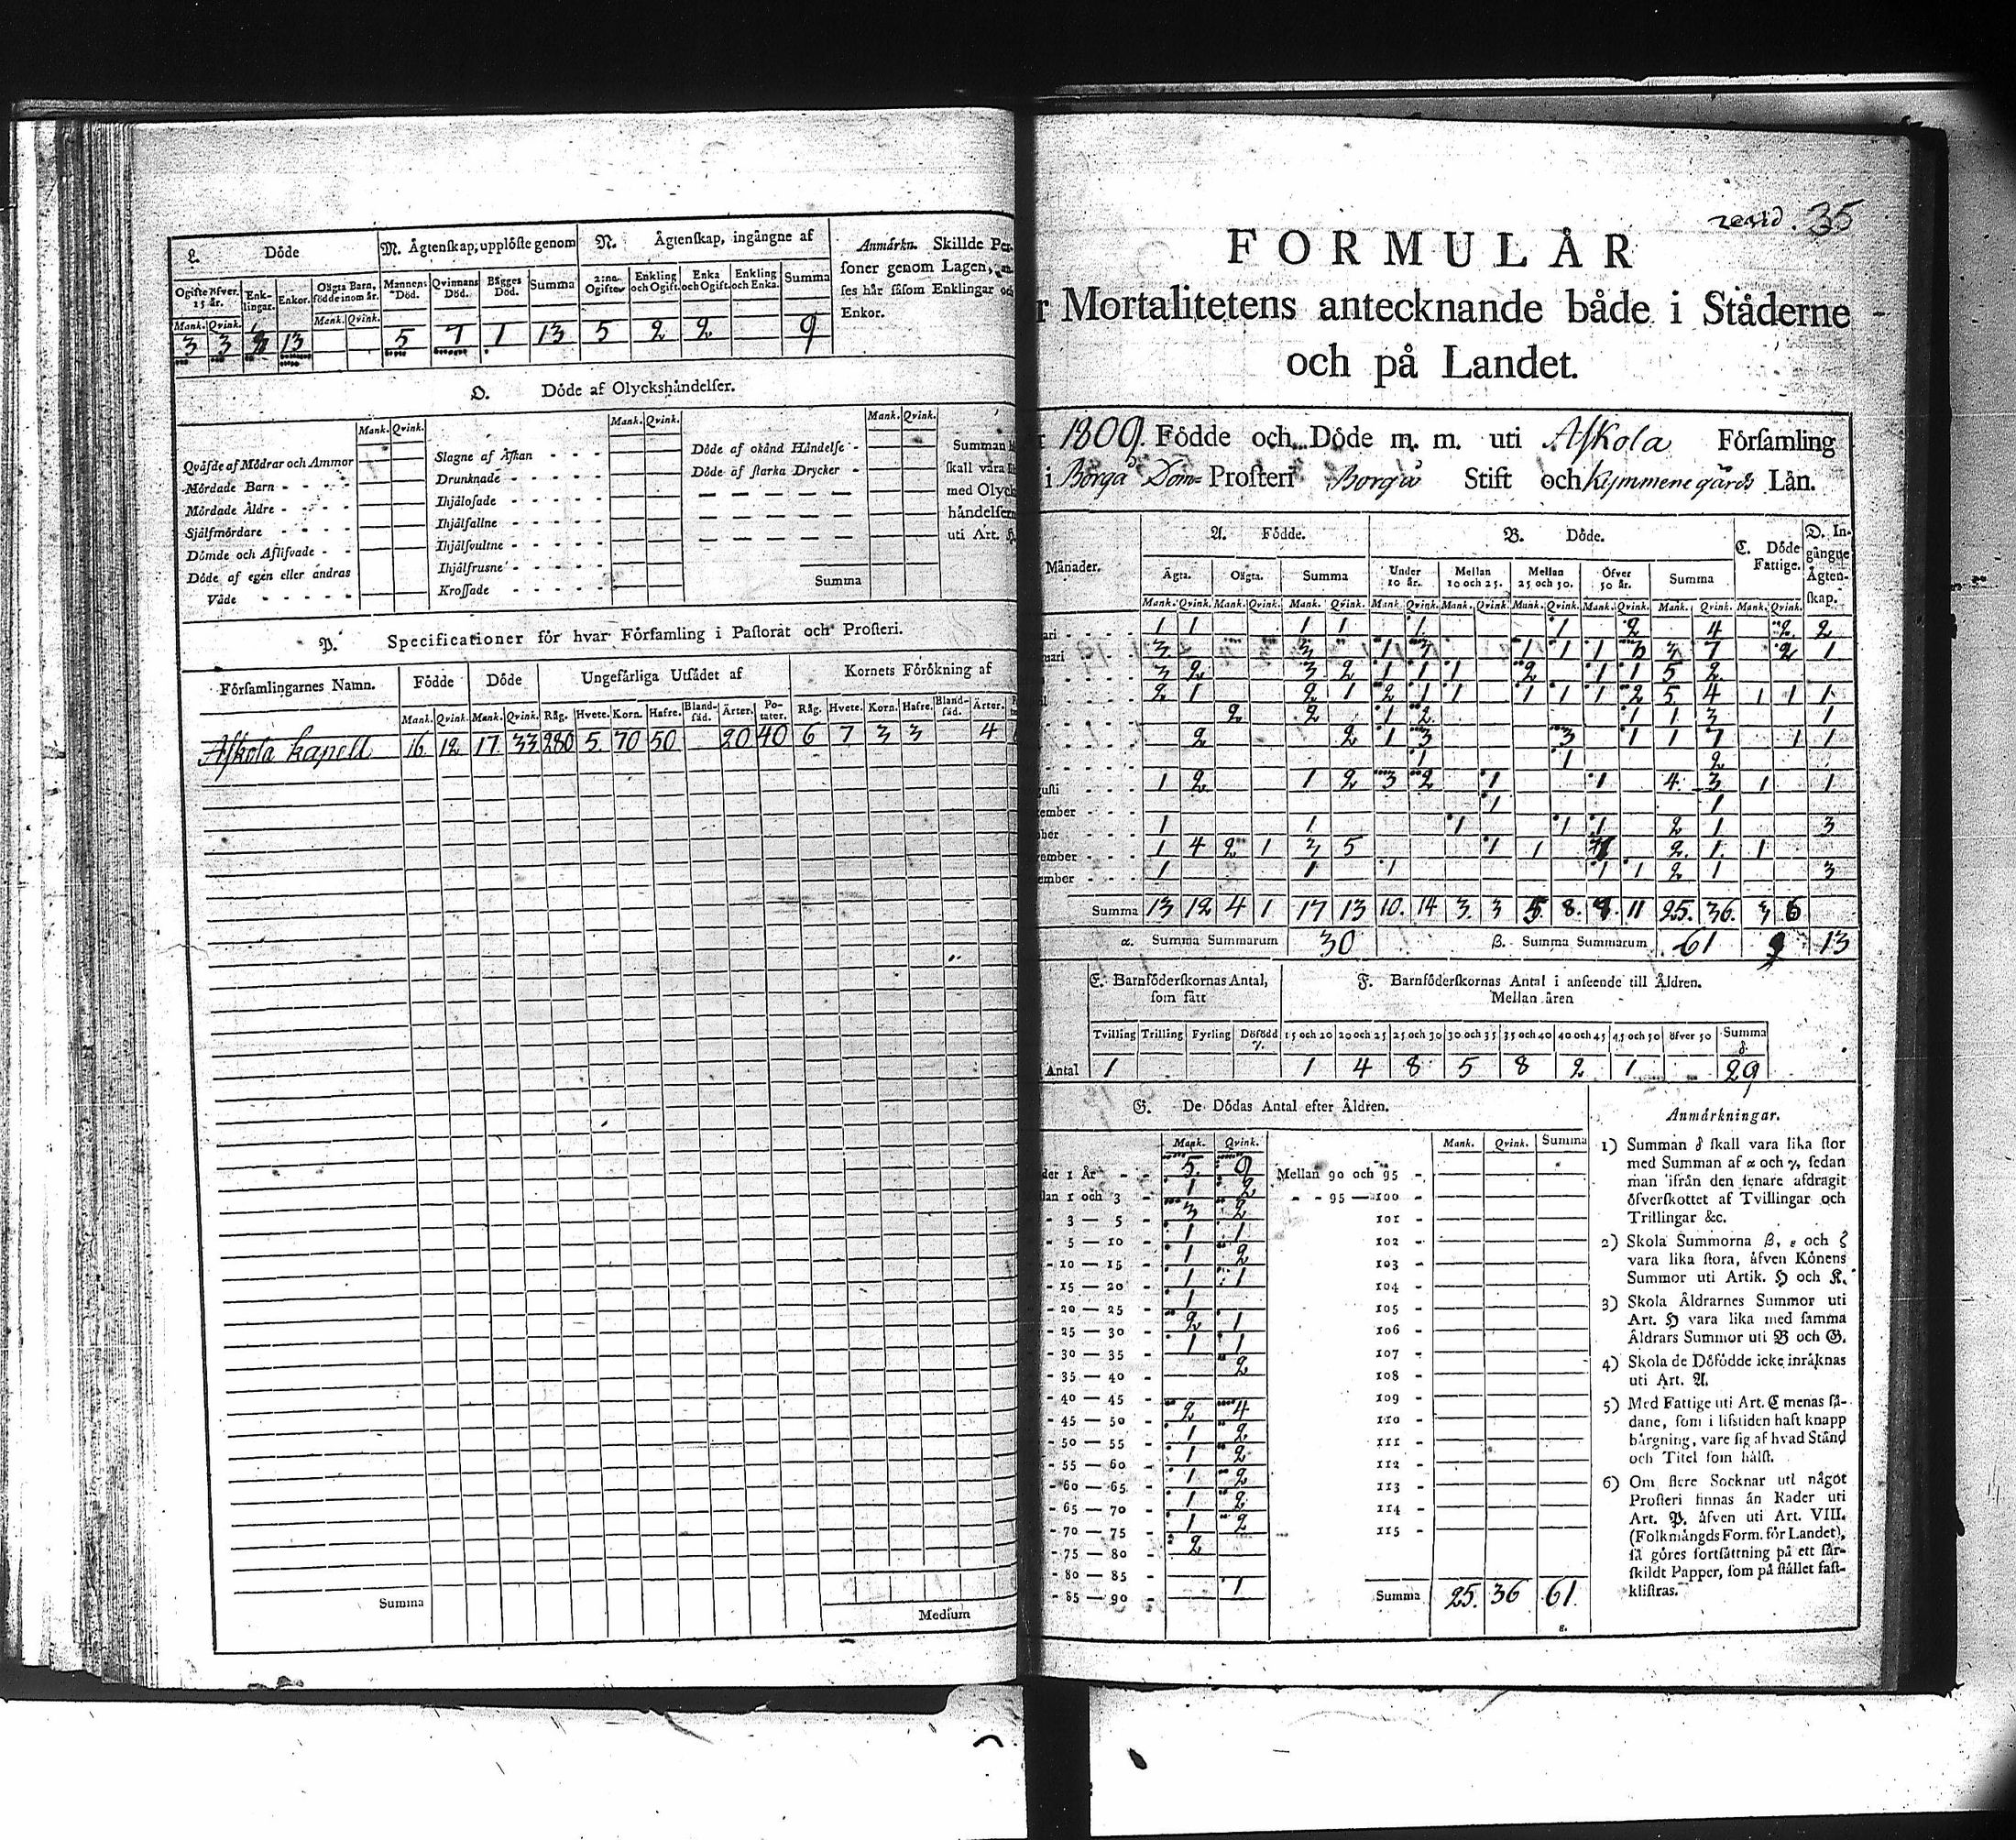 L. Döde
M. Ågtenskap, upplöste genom
N. Ågtenskap, ingångne af
Anmärkn. Skillde Per-
soner genom Lagen, an-
ses här såsom Enklingar och
Enkor.
Ogifte öfver 15 år. Enk-lingar. Enkor. Oägta Barn, födde inom år. Mannens Död. Qvinnans Död. Bägges Död. Summa 2:ne Ogifte Enkling och Ogift. Enka och Ogift. Enkling och Enka. Summa
Mank. Qvink. Mank. Qvink.
3 3 13 5 7 1 13 5 2 2 9
O. Döde af Olyckshändelser.
Mank. Qvink. Mank. Qvink. Mank. Qvink.
Qväfde af Mödrar och Ammor
Mördade Barn
Mördade Äldre
Självfmördare
Dömde och Aflifvade
Döde af egen eller andras
Våde
Slagne af Åskan
Drunknade
Ihjälosade
Ihjälfallne
Ihjälsvultne
Ihjälfrusne
Krossade
Döde af okänd Händelse
Döde af starka Drycker
Summa
Summan
skall vara
med Olyck
händelser
uti Art. H.
P. Specificationer för hvar Församling i Pastorat och Prosteri.
Församlingarnes Namn. Födde Döde Ungefärliga Utsädet af Kornets Förökning af
Mank. Qvink. Mank. Qvink. Råg. Hvete. Korn. Hafre. Bland-säd. Ärter. Po-tater. Råg. Hvete. Korn. Hafre. Bland-säd. Ärter.
Askola kapell 16 12 17 33 280 5 70 50 20 40 6 7 3 3 4
Summa Medium
revid. 35
FORMULÅR
r Mortalitetens antecknande både i Städerne
och på Landet.
1809. Födde och Döde m. m. uti Askola Församling
i Borgå Dom= Prosteri Borgå Stift och Kymmene gårds Län.
Månader. A. Födde. B. Döde. C. Döde Fattige. D. In-gångne Ägten-skap.
Ägta. Oägta. Summa Under 10 år. Mellan 10 och 25. Mellan 25 och 50. Öfver 50 år. Summa
Mank. Qvink. Mank. Qvink. Mank. Qvink. Mank. Qvink. Mank. Qvink. Mank. Qvink. Mank. Qvink. Mank. Qvink. Mank. Qvink.
ari 1 1 1 1 1 1 2 4 2 2
uari 3 3 1 3 1 1 1 3 3 7 2 1
3 2 3 2 1 1 1 2 1 1 5 2
2 1 2 1 2 1 1 1 1 1 2 5 4 1 1 1
2 2 1 2 1 1 3 1
2 2 1 3 3 1 1 7 1 1
1 1 2
gusti 1 2 1 2 3 2 1 1 4 3 1 1
tember 1 1
ober 1 1 1 1 1 2 1 3
vember 1 4 2 1 3 5 1 1 2 1 1
ember 1 1 1 1 1 2 1 3
Summa 13 12 4 1 17 13 10. 14 3. 3 5. 8. 11 25. 36. 3 6
α. Summa Summarum 30 β. Summa Summarum 61 9 13
E. Barnföderskornas Antal, som fått
F. Barnföderskornas Antal i anseende till Åldren.
Mellan åren
Tvilling Trilling Fyrling Dödfödd γ. 15 och 20 20 och 25 25 och 30 30 och 35 35 och 40 40 och 45 45 och 50 öfver 50 Summa δ.
Antal 1 1 4 8 5 8 2 1 29
G. De Dödas Antal efter Åldren.
Mank. Qvink. Mank. Qvink. Summa
der 1 År 5. 9 Mellan 90 och 95
lan 1 och 3 1 2 95 — 100
3 — 5 3 2 101
5 — 10 1 1 102
10 — 15 1 2 103
15 — 20 1 1 104
20 — 25 1 105
25 — 30 2 1 106
30 — 35 1 1 107
35 — 40 2 108
40 — 45 109
45 — 50 2 4 110
50 — 55 1 2 111
55 — 60 1 2 112
60 — 65 1 2 113
65 — 70 1 2 114
70 — 75 1 2 115
75 — 80 2
80 — 85
85 — 90 1 Summa 25. 36 61.
Anmärkningar.
1) Summan δ skall vara lika stor
med Summan af α och γ, sedan
man ifrån den senare afdragit
öfverskottet af Tvillingar och
Trillingar &c.
2) Skola Summorna β, ε och ζ
vara lika stora, äfven Könens
Summor uti Artik. H och K.
3) Skola Åldrarnes Summor uti
Art. H vara lika med samma
Åldrars Summor uti B och G.
4) Skola de Döfödde icke inräknas
uti Art. A.
5) Med Fattige uti Art. C menas så-
dane, som i lifstiden haft knapp
bärgning, vare sig af hvad Stånd
och Titel som hälst.
6) Om flere Socknar uti något
Prosteri finnas än Rader uti
Art. P. äfven uti Art. VIII.
(Folkmängds Form. för Landet),
så göres fortsättning på ett sär-
skildt Papper, som på stället fast-
klistras.